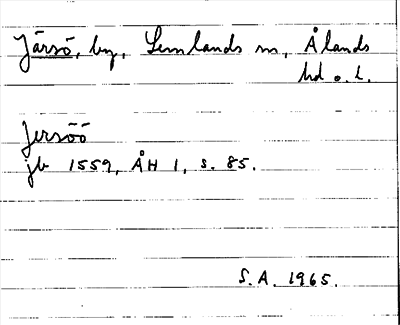 Järsö, by, Lemlands sn, Ålands
hd o. L.
Jersöö
jb 1559, ÅH 1, s. 85.
S.A. 1965.